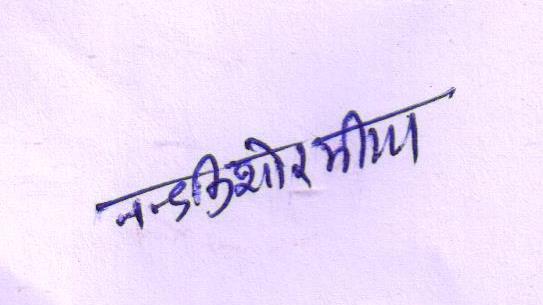 नन्दकिशोर मीणा